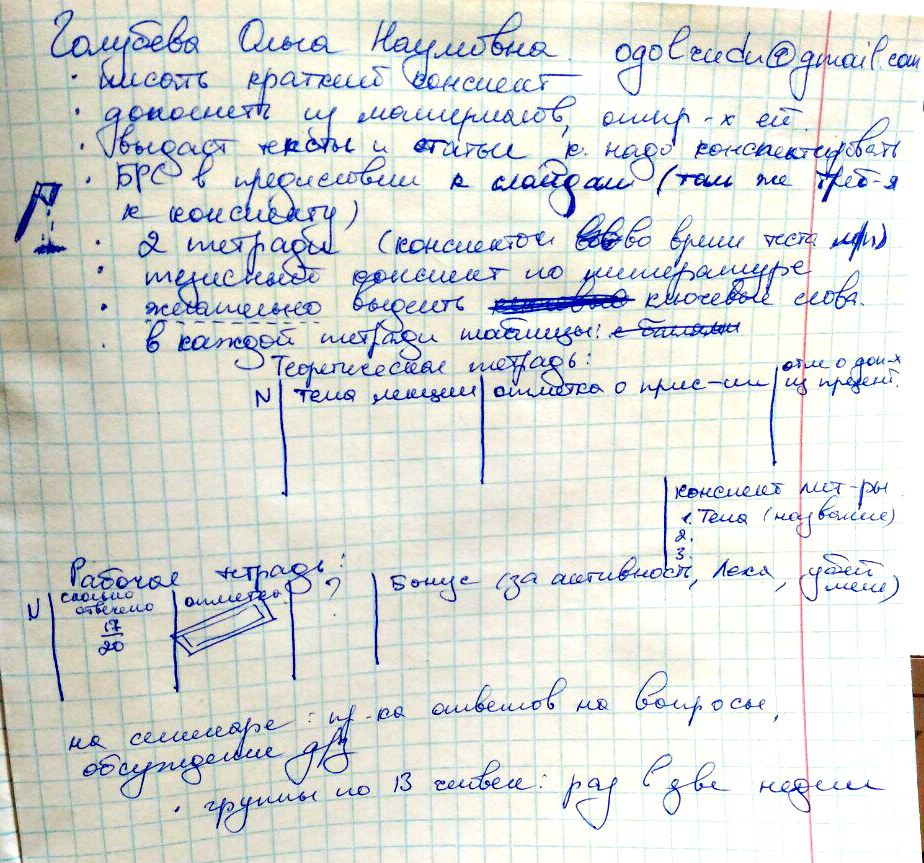 Голубева Ольга Наумовна ogolzudn@gmail.com
· писать краткий конспект
· дополнять из материалов, откр-х ей.
· выдаст тексты и статьи к. надо конспектировать
· БРС в предисловии к слайдам (там же треб-я
к конспекту)
· 2 тетради (конспектом во время теста
· тезисный конспект по литературе
· желательно выделить ключевые слова.
· в каждой тетради таблицы:
Теоретическая тетрадь:
N тема лекции отметка о прис-ии отм о доп-х
из презент.
конспект лит-ры
1. Тема (название)
2.
3.
Рабочая тетрадь:
N сколько отвечено отметка ? Бонус (за активность, Леха, убей меня)
17
20
на семинаре: пр-ка ответов на вопросы,
обсуждение д/з
· группы по 13 человек: раз в две недели